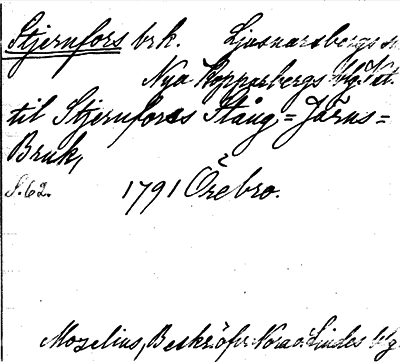 Stjernfors brk. Ljusnarsbergs s
Nya Kopparbergs
til Stjernfors Stång-=Järns=
Bruk,
S. 62. 1791 Örebro.
Mozelius, Beskr. öfver Nora o. Lindes